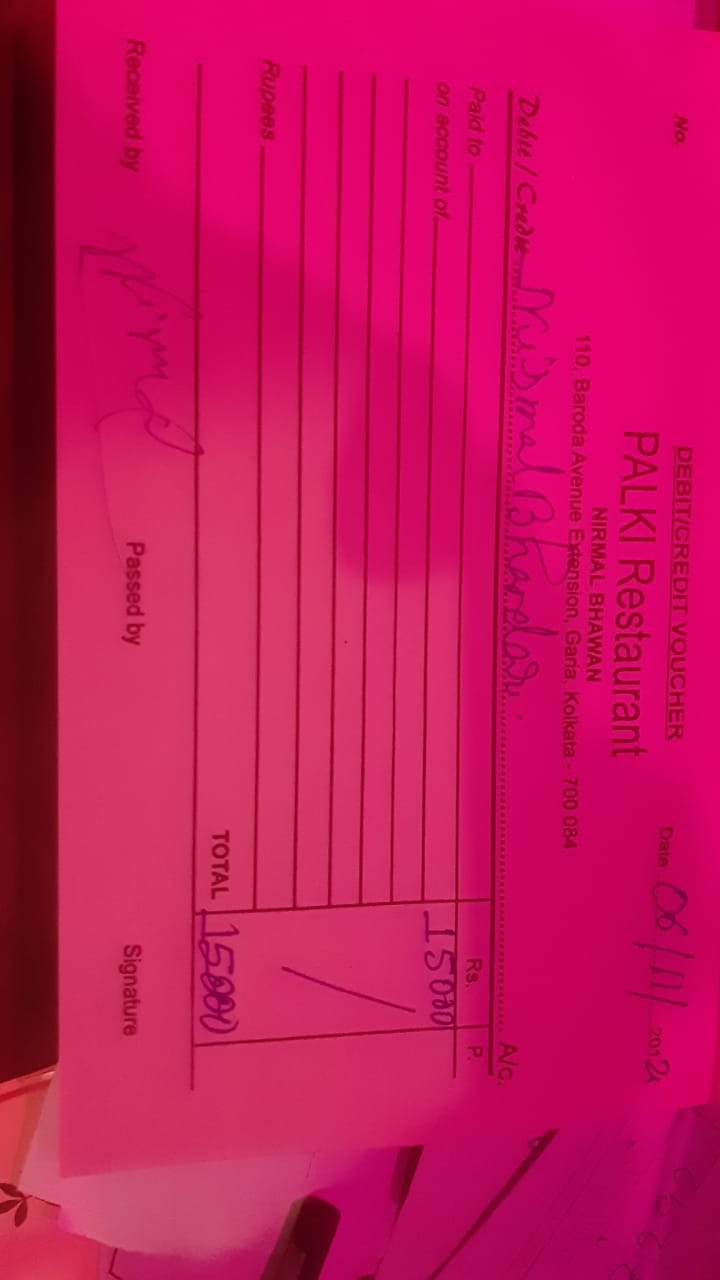 DEBIT/CREDIT VOUCHER
No.
Date 06/11/ 2012
PALKI Restaurant
NIRMAL BHAWAN
110, Baroda Avenue Extension, Garia, Kolkata - 700 084
Debit / Credit Nirmal Bhandar. A/c.
Paid to Rs. P.
on account of 15000
Rupees
TOTAL 15000
Received by Passed by Signature